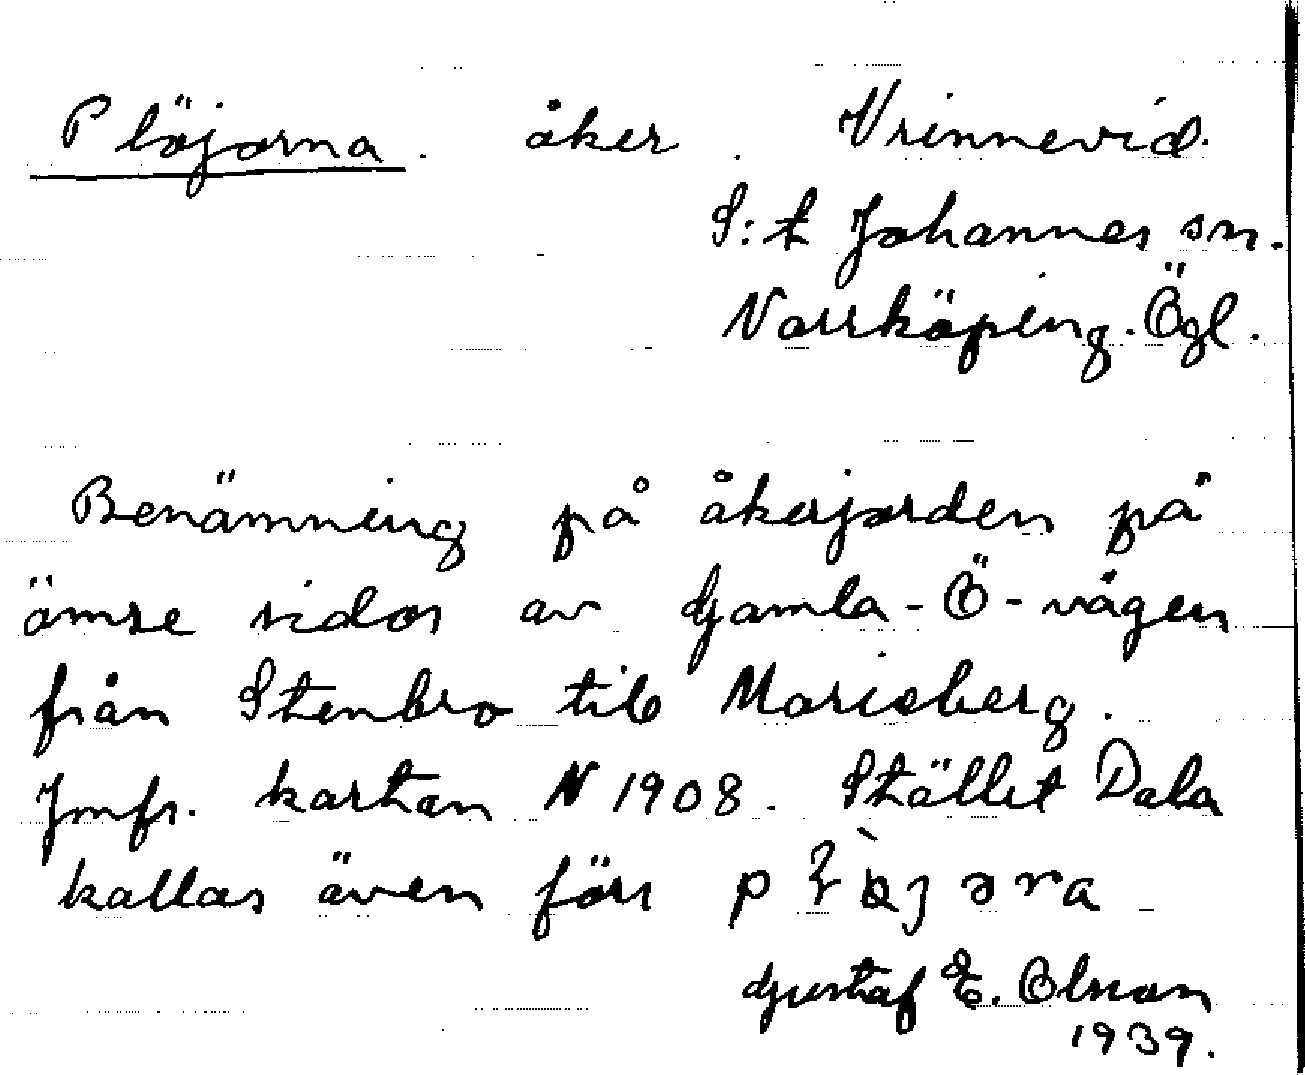 Plöjorna. åker. Vrinnevid.
S:t Johannes sn.
Norrköping. Ögl.
Benämning på åkerjorden på
ömse sidor av Gamla-Ö-vägen
från Stenbro till Marieberg.
Jmfr. kartan N 1908. Stället Dala
kallas även förr
Gustaf E. Olsson
1939.